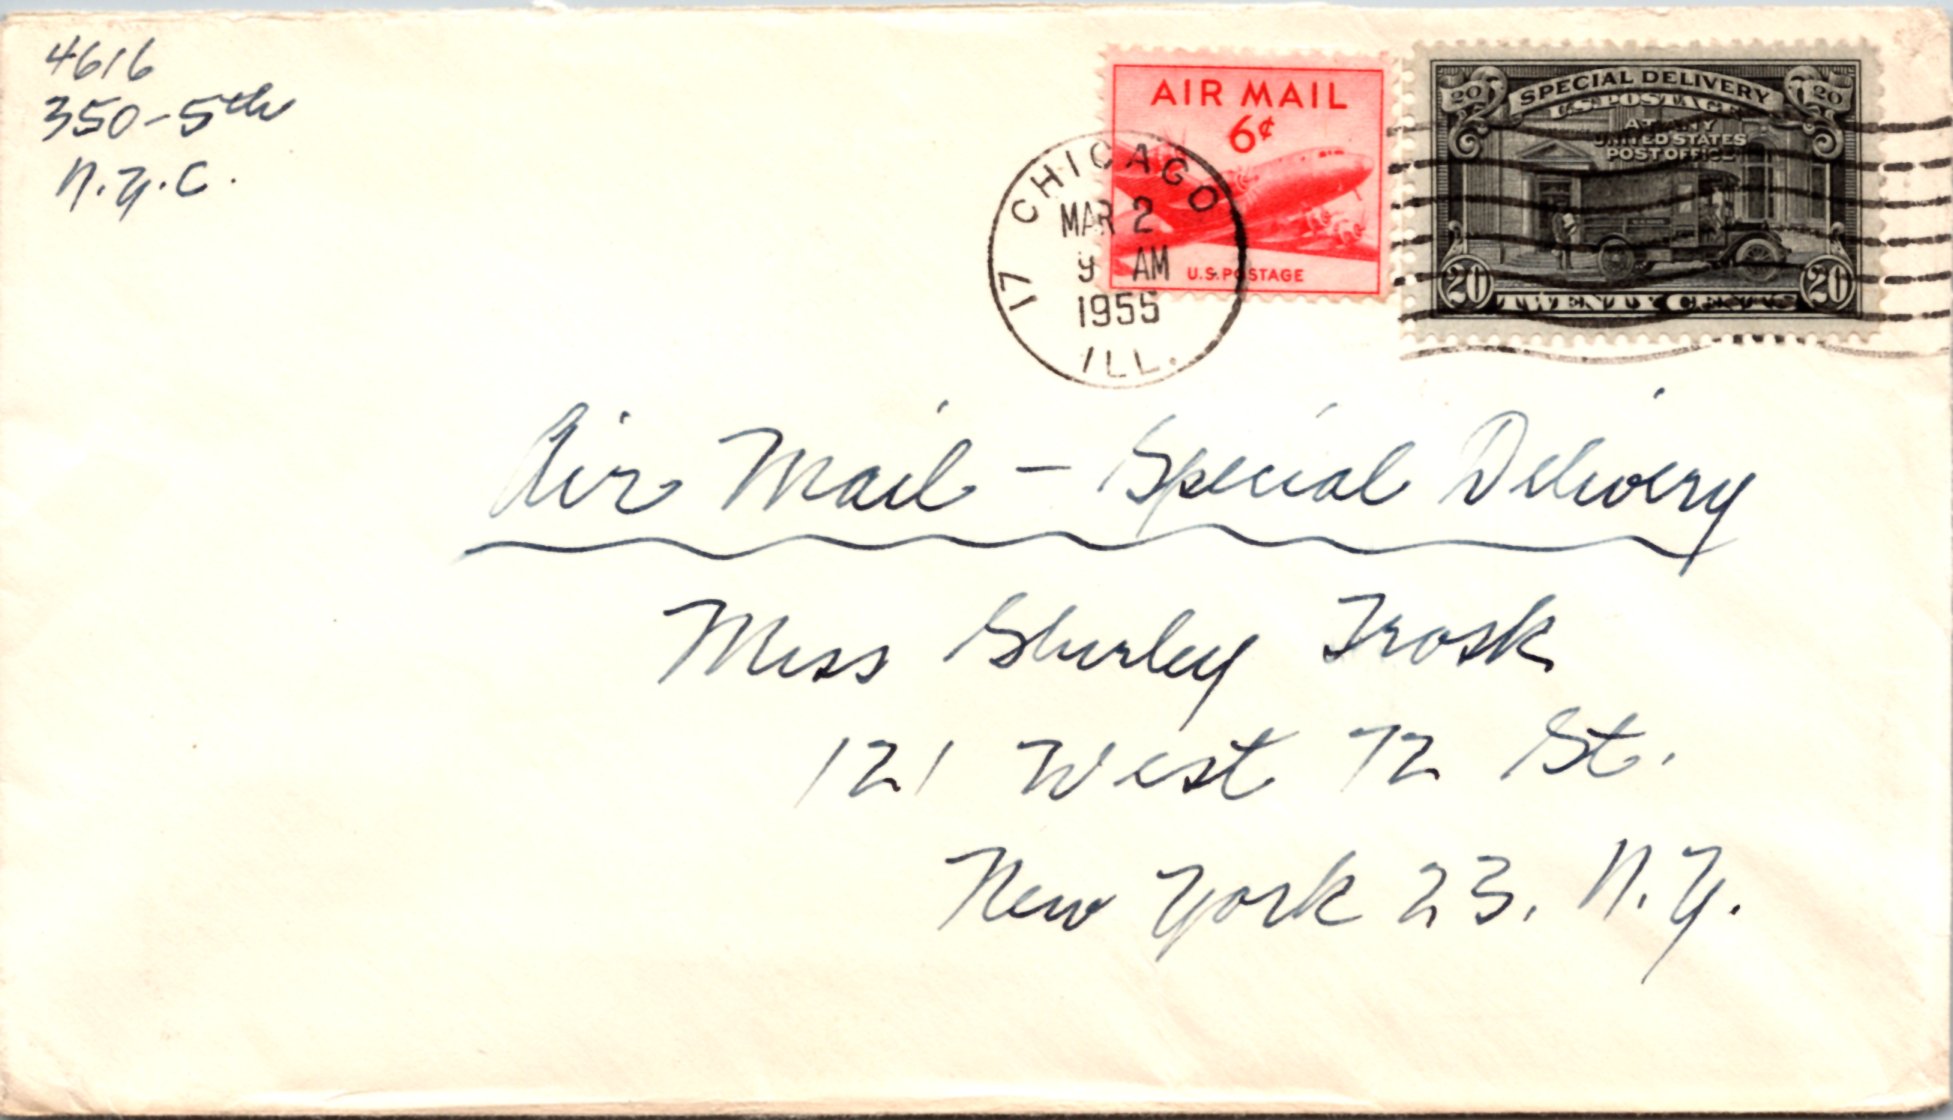 4616
350-5th
N.Y.C.
AIR MAIL
6¢
U.S. POSTAGE
20 SPECIAL DELIVERY 20
U.S. POSTAGE
AT ANY
UNITED STATES
POST OFFICE
20 TWENTY CENTS 20
17 CHICAGO
MAR 2
9 AM
1955
ILL.
Air Mail - Special Delivery
Miss Shirley Trosk
121 West 72 St.
New York 23, N.Y.